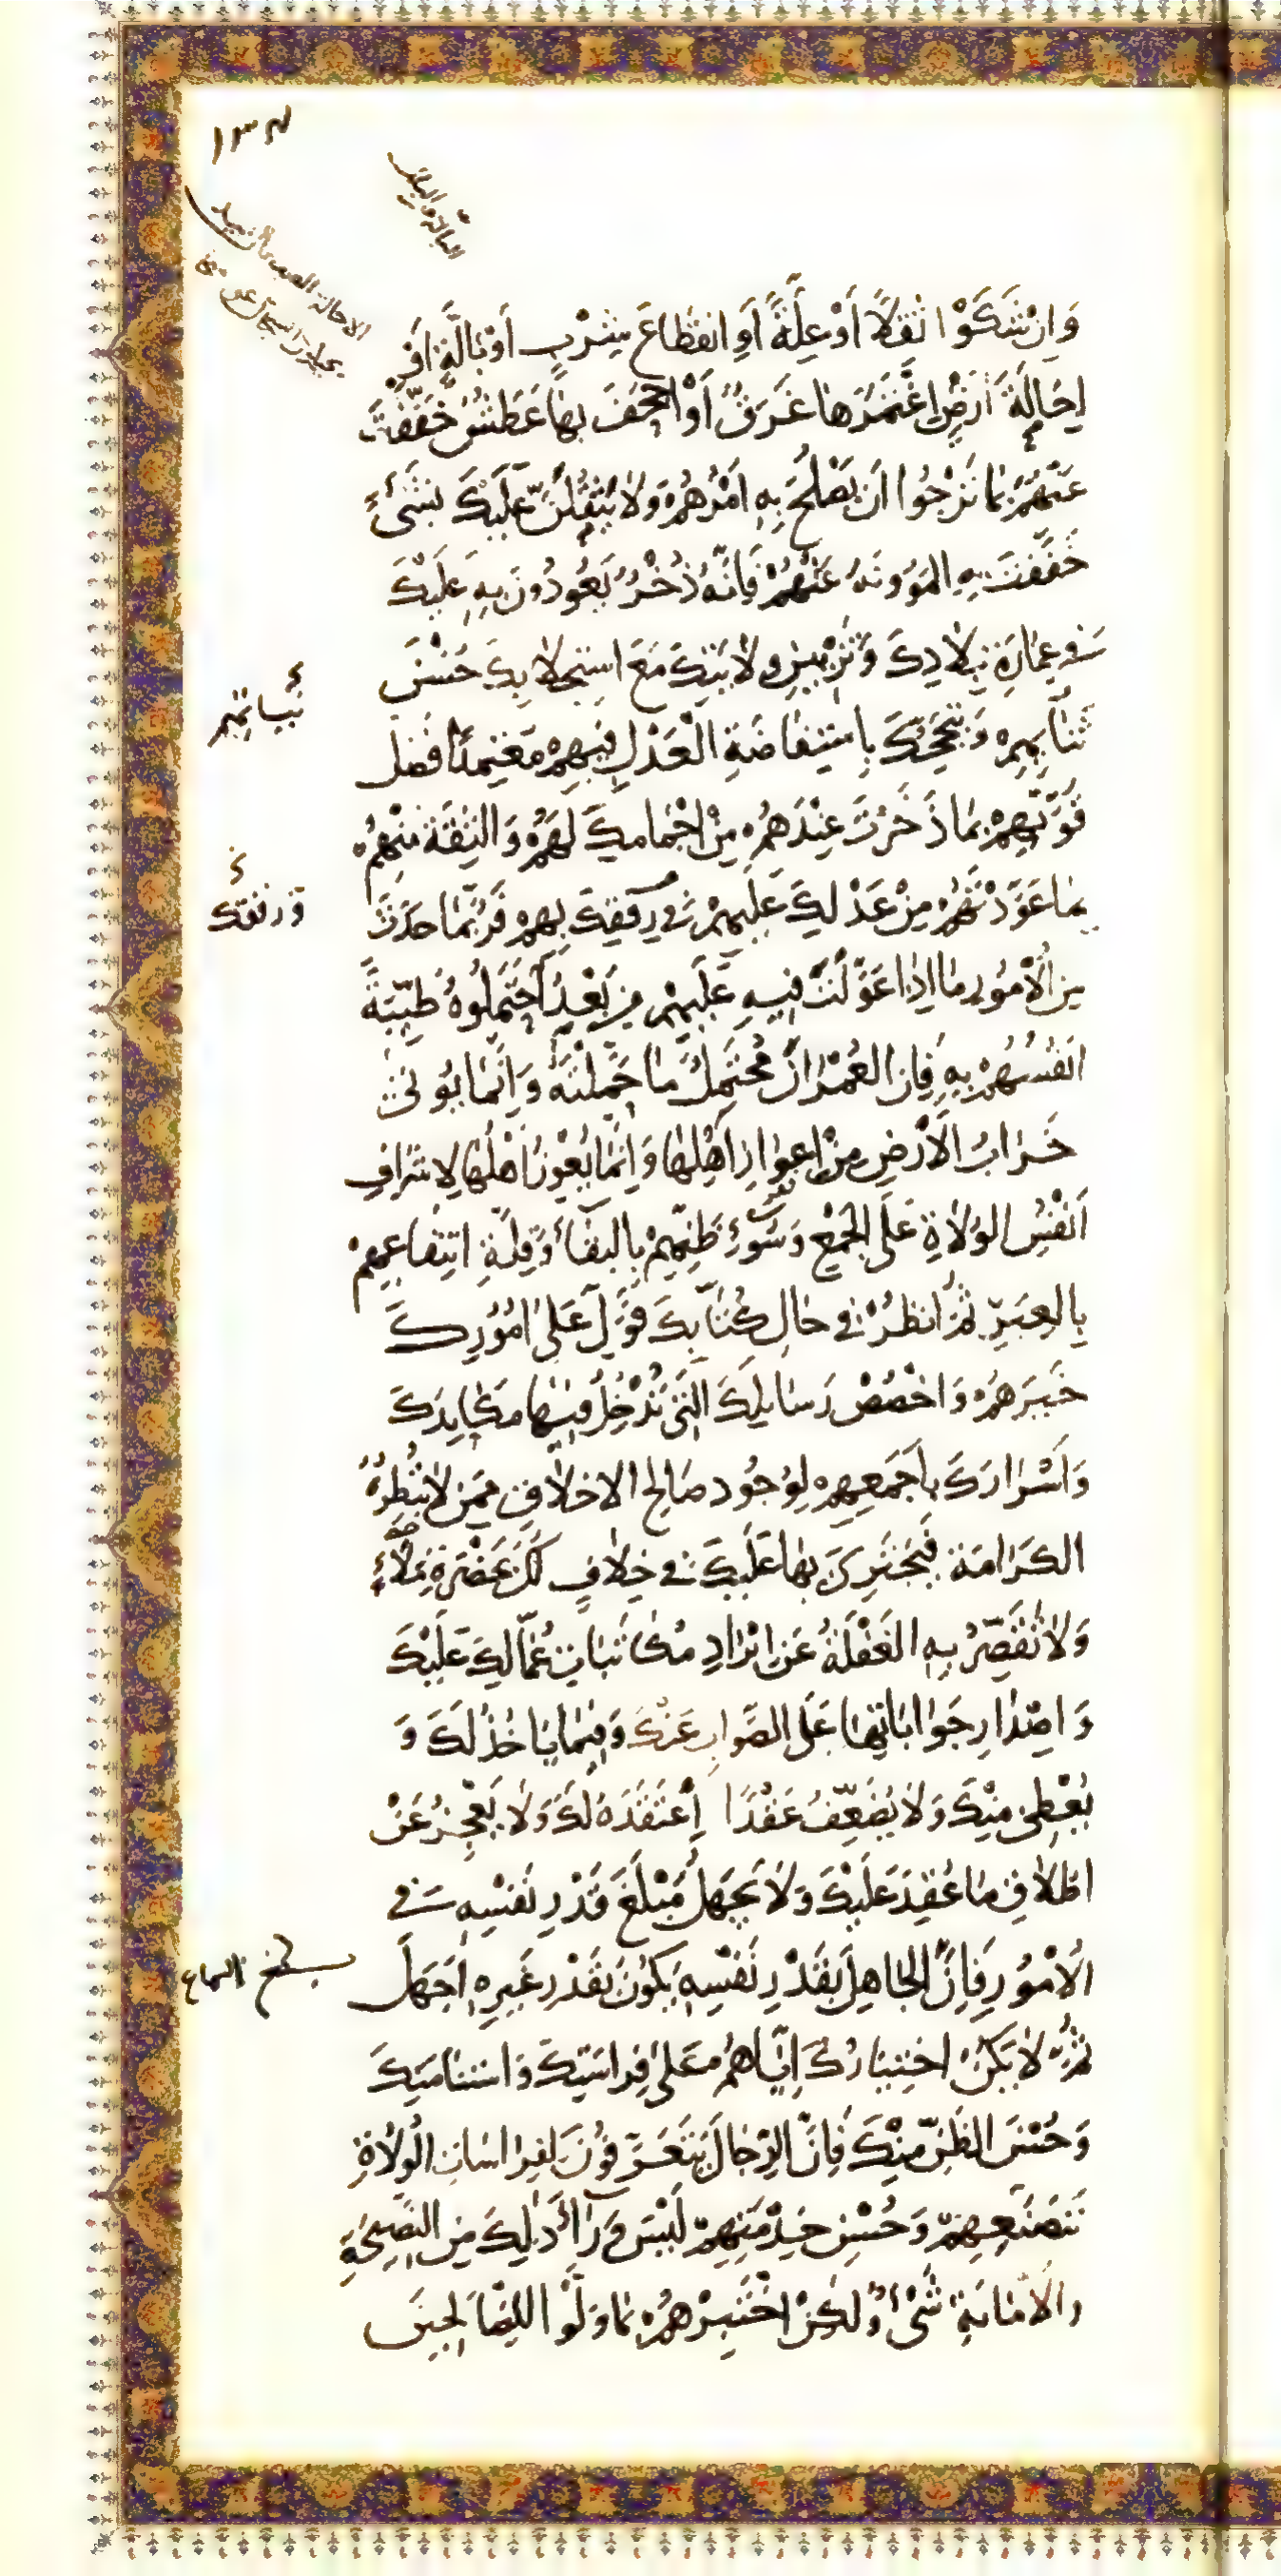 ١٣٤
البالة البلل
وَاِنْ شَكَوْا ثِقَلًا أَوْ عِلَّةً أَوِ انقِطَاعَ شِرْبٍ أَوْ بَالَّةٍ أَوْ
اِحَالَةَ اَرْضٍ اِغْتَمَرَهَا غَرَقٌ أَوْ اَجْحَفَ بِهَا عَطَشٌ خَفَّفْتَ
عَنْهُمْ بِمَا تَرْجُوا اَنْ يَصْلُحَ بِهِ اَمْرُهُمْ وَلَا يَثْقُلَنَّ عَلَيْكَ شَىْءٌ
خَفَّفْتَ بِهِ المَؤُونَةَ عَنْهُمْ فَاِنَّهُ ذُخْرٌ يَعُودُونَ بِهِ عَلَيْكَ
فِى عِمَارَةِ بِلَادِكَ وَتَزْيِينِ وِلَايَتِكَ مَعَ اسْتِجْلَابِكَ حُسْنَ
ثَنَائِهِمْ وَتَبَجُّحِكَ بِاسْتِفَاضَةِ الْعَدْلِ فِيهِمْ مُعْتَمِدًا فَضْلَ
قُوَّتِهِمْ بِمَا ذَخَرْتَ عِنْدَهُمْ مِنْ اِجْمَامِكَ لَهُمْ وَالثِّقَةَ مِنْهُمْ
بِمَا عَوَّدْتَهُمْ مِنْ عَدْلِكَ عَلَيْهِمْ فِى رِفْقِكَ بِهِمْ فَرُبَّمَا حَدَثَ
مِنَ الْأُمُورِ مَا اِذَا عَوَّلْتَ فِيهِ عَلَيْهِمْ مِنْ بَعْدُ احْتَمَلُوهُ طَيِّبَةً
اَنْفُسُهُمْ بِهِ فَاِنَّ العُمْرَانَ مُحْتَمِلٌ مَا حَمَّلْتَهُ وَاِنَّمَا يُؤْتىٰ
خَرَابُ الْاَرْضِ مِنْ اِعْوَازِ اَهْلِهَا وَاِنَّمَا يُعْوِزُ اَهْلُهَا لِاشْرَافِ
اَنْفُسِ الوُلَاةِ عَلَى الْجَمْعِ وَسُوْءِ ظَنِّهِمْ بِالْبَقَاءِ وَقِلَّةِ انْتِفَاعِهِمْ
بِالعِبَرِ ثُمَّ انْظُرْ فِى حَالِ كُتَّابِكَ فَوَلِّ عَلىٰ اُمُورِكَ
خَيْرَهُمْ وَاخْصُصْ رَسَائِلَكَ الَّتِى تُدْخِلُ فِيهَا مَكَايِدَكَ
وَاَسْرَارَكَ بِاَجْمَعِهِمْ لِوُجُودِ صَالِحِ الاخْلَاقِ مِمَّنْ لَا تُبْطِرُهُ
الكَرَامَةُ فَيَجْتَرِىَ بِهَا عَلَيْكَ فِى خِلَافٍ لَكَ بِحَضْرَةِ مَلَاءٍ
وَلَا تُقَصِّرُ بِهِ الغَفْلَةُ عَنْ اِيْرَادِ مُكَاتَبَاتِ عُمَّالِكَ عَلَيْكَ
وَاصْدَارِ جَوَابَاتِهَا عَلَى الصَّوَابِ عَنْكَ وَفِيمَا يَأْخُذُ لَكَ وَ
يُعْطِى مِنْكَ وَلَا يُضَعِّفُ عَقْدًا اِعْتَقَدَهُ لَكَ وَلَا يَعْجِزُ عَنْ
اطْلَاقِ مَا عُقِدَ عَلَيْكَ وَلَا يَجْهَلُ مَبْلَغَ قَدْرِ نَفْسِهِ فِى
الْاُمُورِ فَاِنَّ الْجَاهِلَ بِقَدْرِ نَفْسِهِ يَكُونُ بِقَدْرِ غَيْرِهِ اَجْهَلَ
ثُمَّ لَا يَكُنْ اخْتِيَارُكَ اِيَّاهُمْ عَلىٰ فِرَاسَتِكَ وَاسْتِنَامَتِكَ
وَحُسْنَ الظَّنِّ مِنْكَ فَاِنَّ الرِّجَالَ يَتَعَرَّفُوْنَ لِفِرَاسَاتِ الْوُلَاةِ
بِتَصَنُّعِهِمْ وَحُسْنِ خِدْمَتِهِمْ لَيْسَ وَرَآءَ ذٰلِكَ مِنَ النَّصِيْحَةِ
وَالْاَمَانَةِ شَىْءٌ وَلٰكِنْ اخْتَبِرْهُمْ بِمَا وَلُّوا لِلصَّالِحِينَ